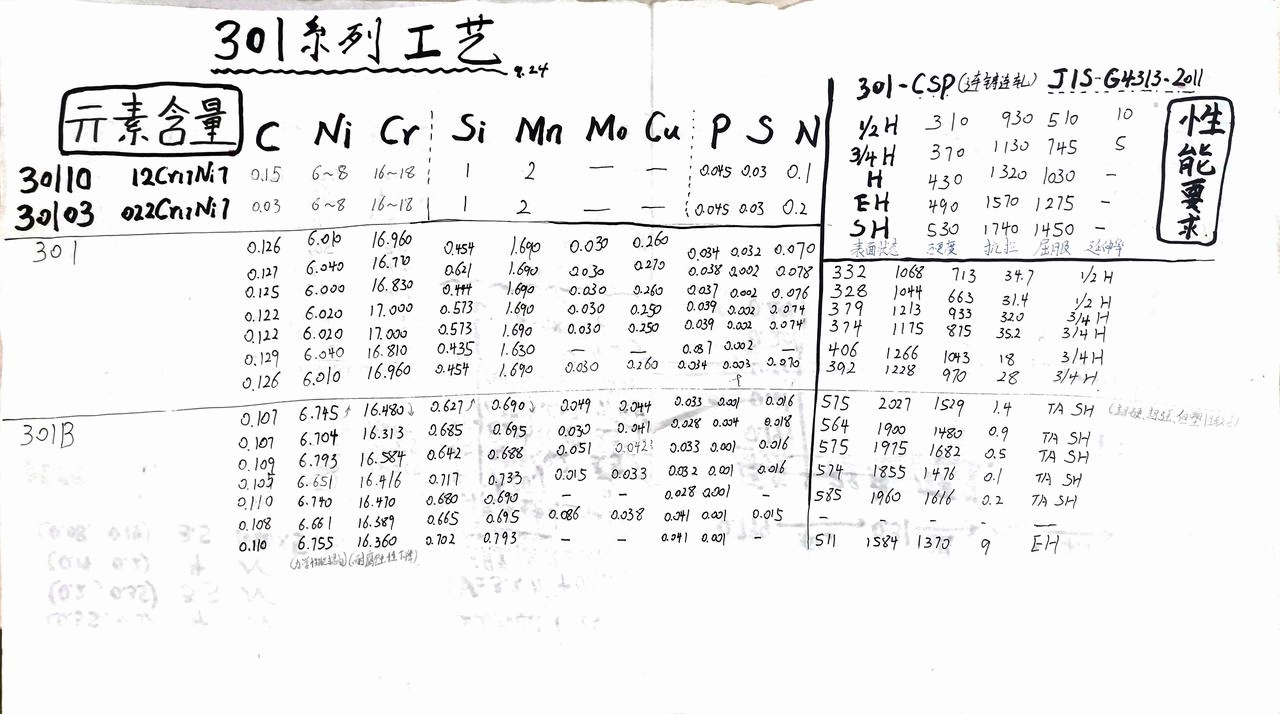 301系列工艺
9.24
元素含量
C Ni Cr Si Mn Mo Cu P S N
30110 12Cr17Ni7 0.15 6~8 16~18 1 2 — — 0.045 0.03 0.1
30103 022Cr17Ni7 0.03 6~8 16~18 1 2 — — 0.045 0.03 0.2
301-CSP(连铸连轧) JIS-G4313-2011
性能要求
1/2H 310 930 510 10
3/4H 370 1130 745 5
H 430 1320 1030 -
EH 490 1570 1275 -
SH 530 1740 1450 -
表面状态 硬度 抗拉 屈服 延伸率
301
0.126 6.010 16.960 0.454 1.690 0.030 0.260 0.034 0.032 0.070 332 1068 713 34.7 1/2H
0.127 6.040 16.770 0.621 1.690 0.030 0.270 0.038 0.002 0.078 328 1044 663 31.4 1/2H
0.125 6.000 16.830 0.444 1.690 0.030 0.260 0.037 0.002 0.076 379 1213 933 320 3/4H
0.122 6.020 17.000 0.573 1.690 0.030 0.250 0.039 0.002 0.074 374 1175 875 35.2 3/4H
0.122 6.020 17.000 0.573 1.690 0.030 0.250 0.039 0.002 0.074 406 1266 1043 18 3/4H
0.129 6.040 16.810 0.435 1.630 — — 0.037 0.002 — 392 1228 970 28 3/4H
0.126 6.010 16.960 0.454 1.690 0.030 0.260 0.034 0.003 0.070
↑
301B
0.107 6.745↑ 16.480↓ 0.627↑ 0.690↓ 0.049 0.044 0.033 0.001 0.016 575 2027 1529 1.4 TA SH
0.107 6.704 16.313 0.685 0.695 0.030 0.041 0.028 0.004 0.018 564 1900 1480 0.9 TA SH
0.109 6.793 16.584 0.642 0.688 0.051 0.0423 0.033 0.001 0.016 575 1975 1682 0.5 TA SH
0.105 6.651 16.416 0.717 0.733 0.015 0.033 0.032 0.001 0.016 574 1855 1476 0.1 TA SH
0.110 6.740 16.470 0.680 0.690 - - 0.028 0.001 - 585 1960 1616 0.2 TA SH
0.108 6.661 16.389 0.665 0.695 0.086 0.038 0.041 0.001 0.015 - - - - —
0.110 6.755 16.360 0.702 0.793 - - 0.041 0.001 - 511 1584 1370 9 EH
(力学性能提高)(耐腐蚀性下降)